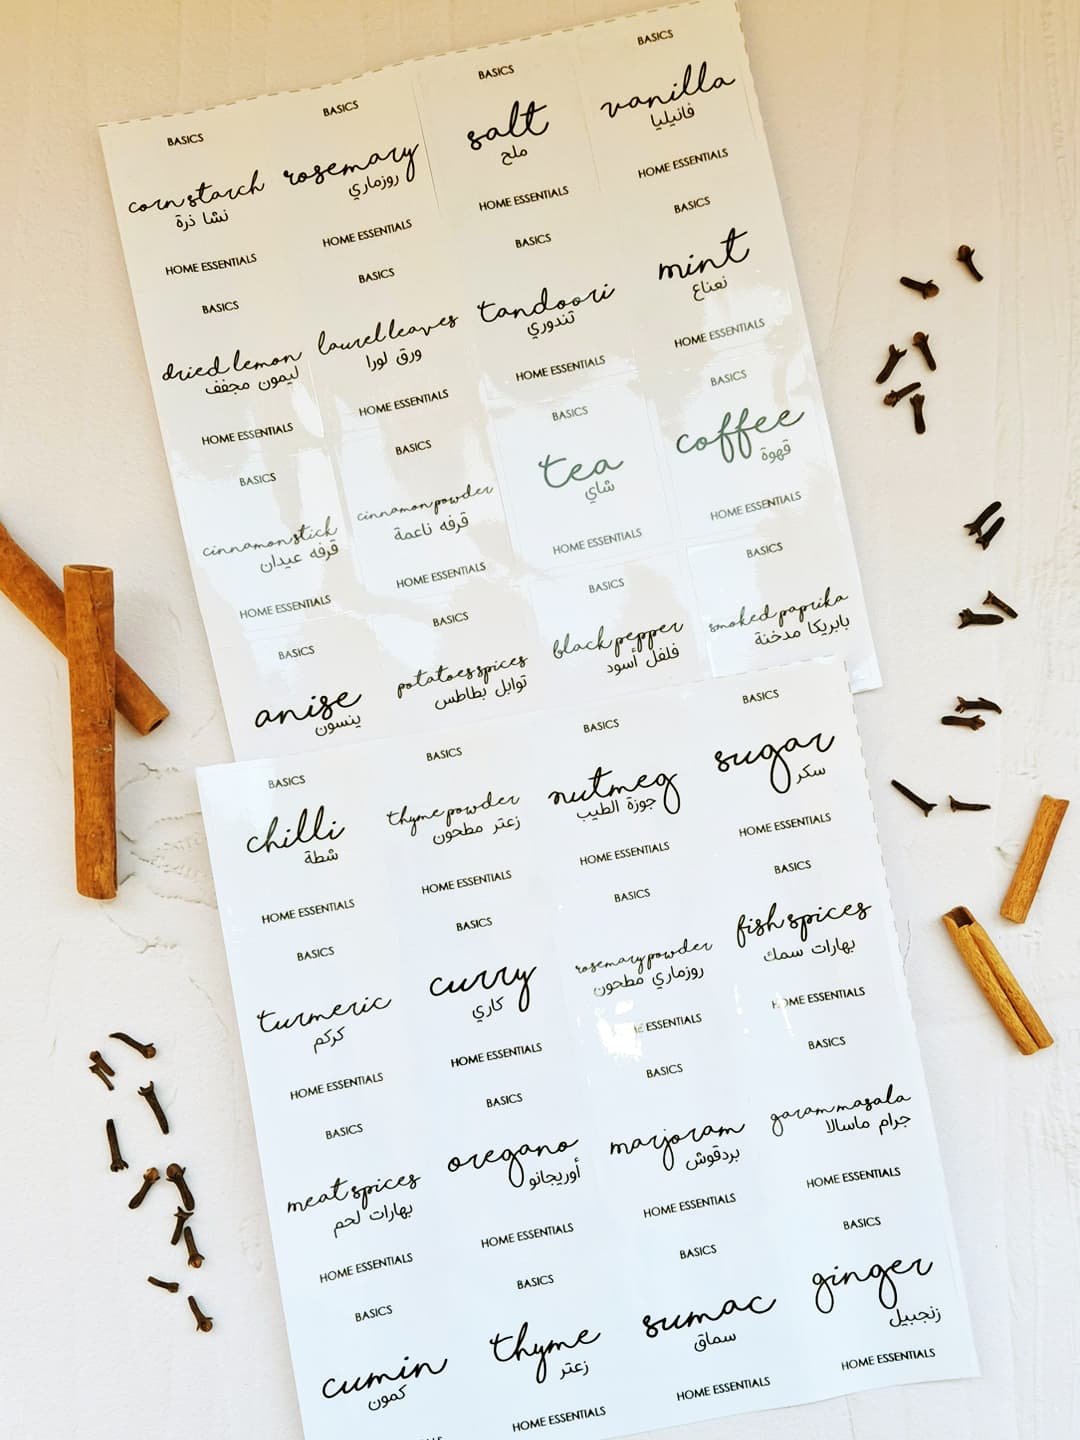 BASICS
corn starch
نشا ذرة
HOME ESSENTIALS
BASICS
rosemary
روزماري
HOME ESSENTIALS
BASICS
salt
ملح
HOME ESSENTIALS
BASICS
vanilla
فانيليا
HOME ESSENTIALS
BASICS
dried lemon
ليمون مجفف
HOME ESSENTIALS
BASICS
laurel leaves
ورق لورا
HOME ESSENTIALS
BASICS
tandoori
تندوري
HOME ESSENTIALS
BASICS
mint
نعناع
HOME ESSENTIALS
BASICS
cinnamon stick
قرفه عيدان
HOME ESSENTIALS
BASICS
cinnamon powder
قرفه ناعمة
HOME ESSENTIALS
BASICS
tea
شاي
HOME ESSENTIALS
BASICS
coffee
قهوة
HOME ESSENTIALS
BASICS
anise
ينسون
BASICS
potatoes spices
توابل بطاطس
BASICS
black pepper
فلفل أسود
BASICS
smoked paprika
بابريكا مدخنة
BASICS
chilli
شطة
HOME ESSENTIALS
BASICS
thyme powder
زعتر مطحون
HOME ESSENTIALS
BASICS
nutmeg
جوزة الطيب
HOME ESSENTIALS
BASICS
sugar
سكر
HOME ESSENTIALS
BASICS
turmeric
كركم
HOME ESSENTIALS
BASICS
curry
كاري
HOME ESSENTIALS
BASICS
rosemary powder
روزماري مطحون
ESSENTIALS
BASICS
fish spices
بهارات سمك
HOME ESSENTIALS
BASICS
meat spices
بهارات لحم
HOME ESSENTIALS
BASICS
oregano
أوريجانو
HOME ESSENTIALS
BASICS
marjoram
بردقوش
HOME ESSENTIALS
BASICS
garam masala
جرام ماسالا
HOME ESSENTIALS
BASICS
cumin
كمون
BASICS
thyme
زعتر
HOME ESSENTIALS
BASICS
sumac
سماق
HOME ESSENTIALS
BASICS
ginger
زنجبيل
HOME ESSENTIALS